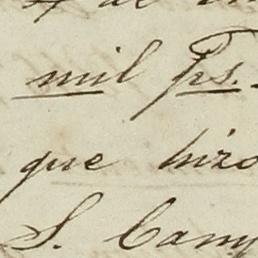 mil ps.
que hizo
S. Cam